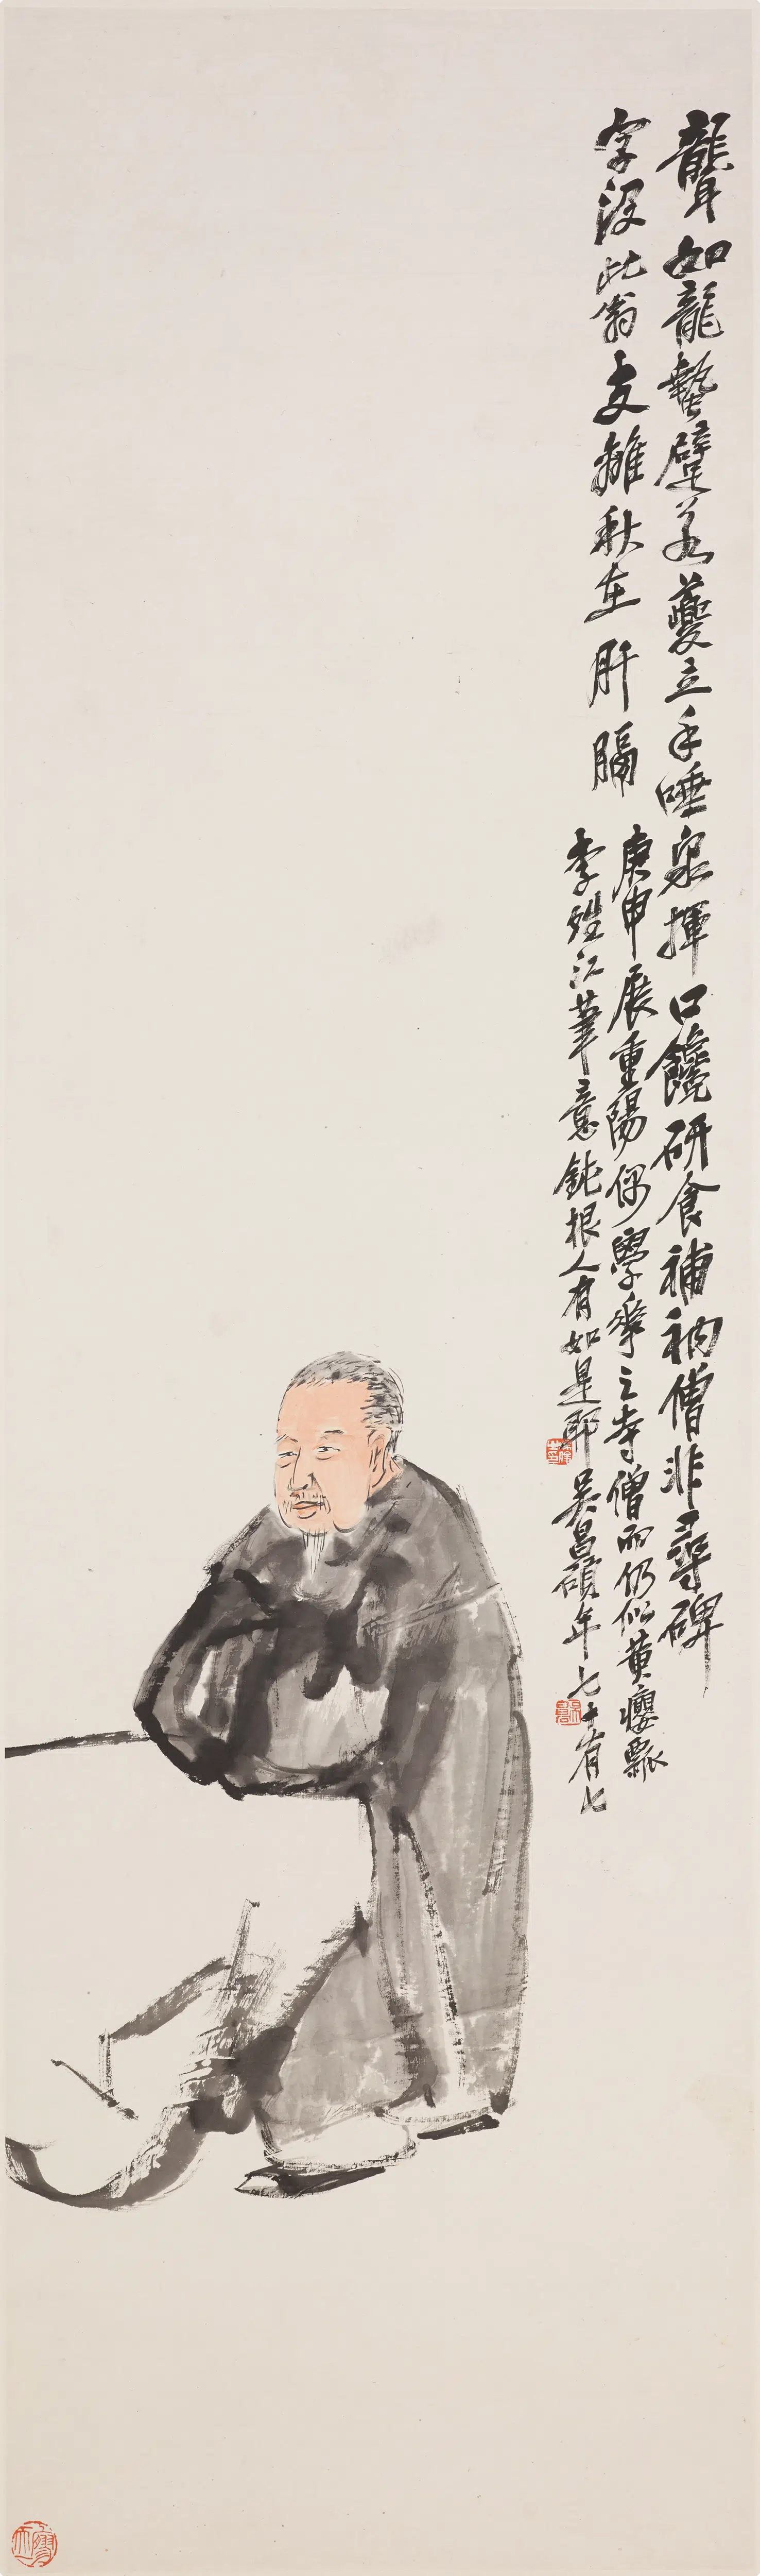 聾如龍蟄躄若夔立手唾泉揮口饞研食補衲僧非尋碑
字沒此翁支離秋在肝膈
庚申展重陽偶學之寺僧而仍似黃癭瓢
李江筆意鈍根人有如是耶吳昌碩年七十有七